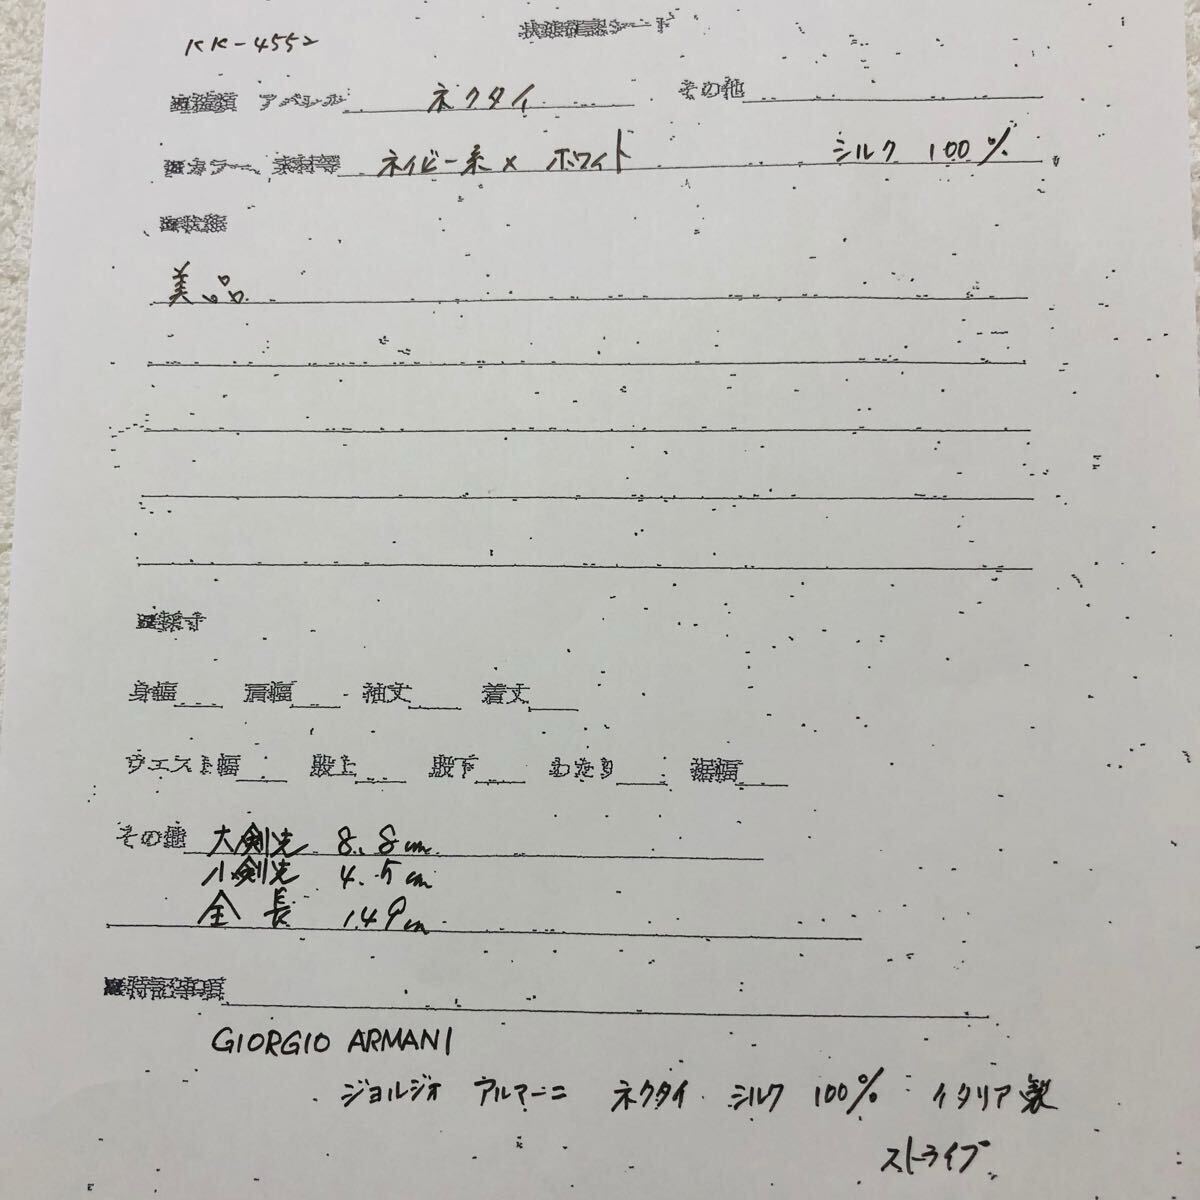 KK-4552
状態確認シート
■種類 アパレル ネクタイ その他
■カラー、素材等 ネイビー系×ホワイト シルク 100%
■状態
美品
■採寸
身幅 肩幅 袖丈 着丈
ウエスト幅 股上 股下 わたり 裾幅
その他 大剣先 8.8cm
小剣先 4.5cm
全長 149cm
■特記事項
GIORGIO ARMANI
ジョルジオ アルマーニ ネクタイ シルク 100% イタリア製
ストライプ